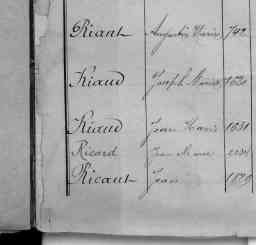 Riant Augustin Marie 742
Riaud Joseph Marie 1620
Riaud Jean Marie 1631
Ricard Jean Marie
Ricaut Jean 1829